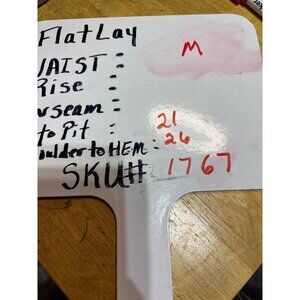 Flat Lay
M
WAIST:
Rise :
seam :
to Pit : 21
oulder to HEM: 26
SKU# 1767